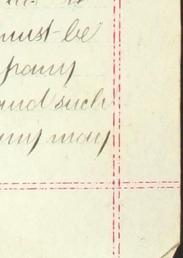 must be
pany
and such
any may